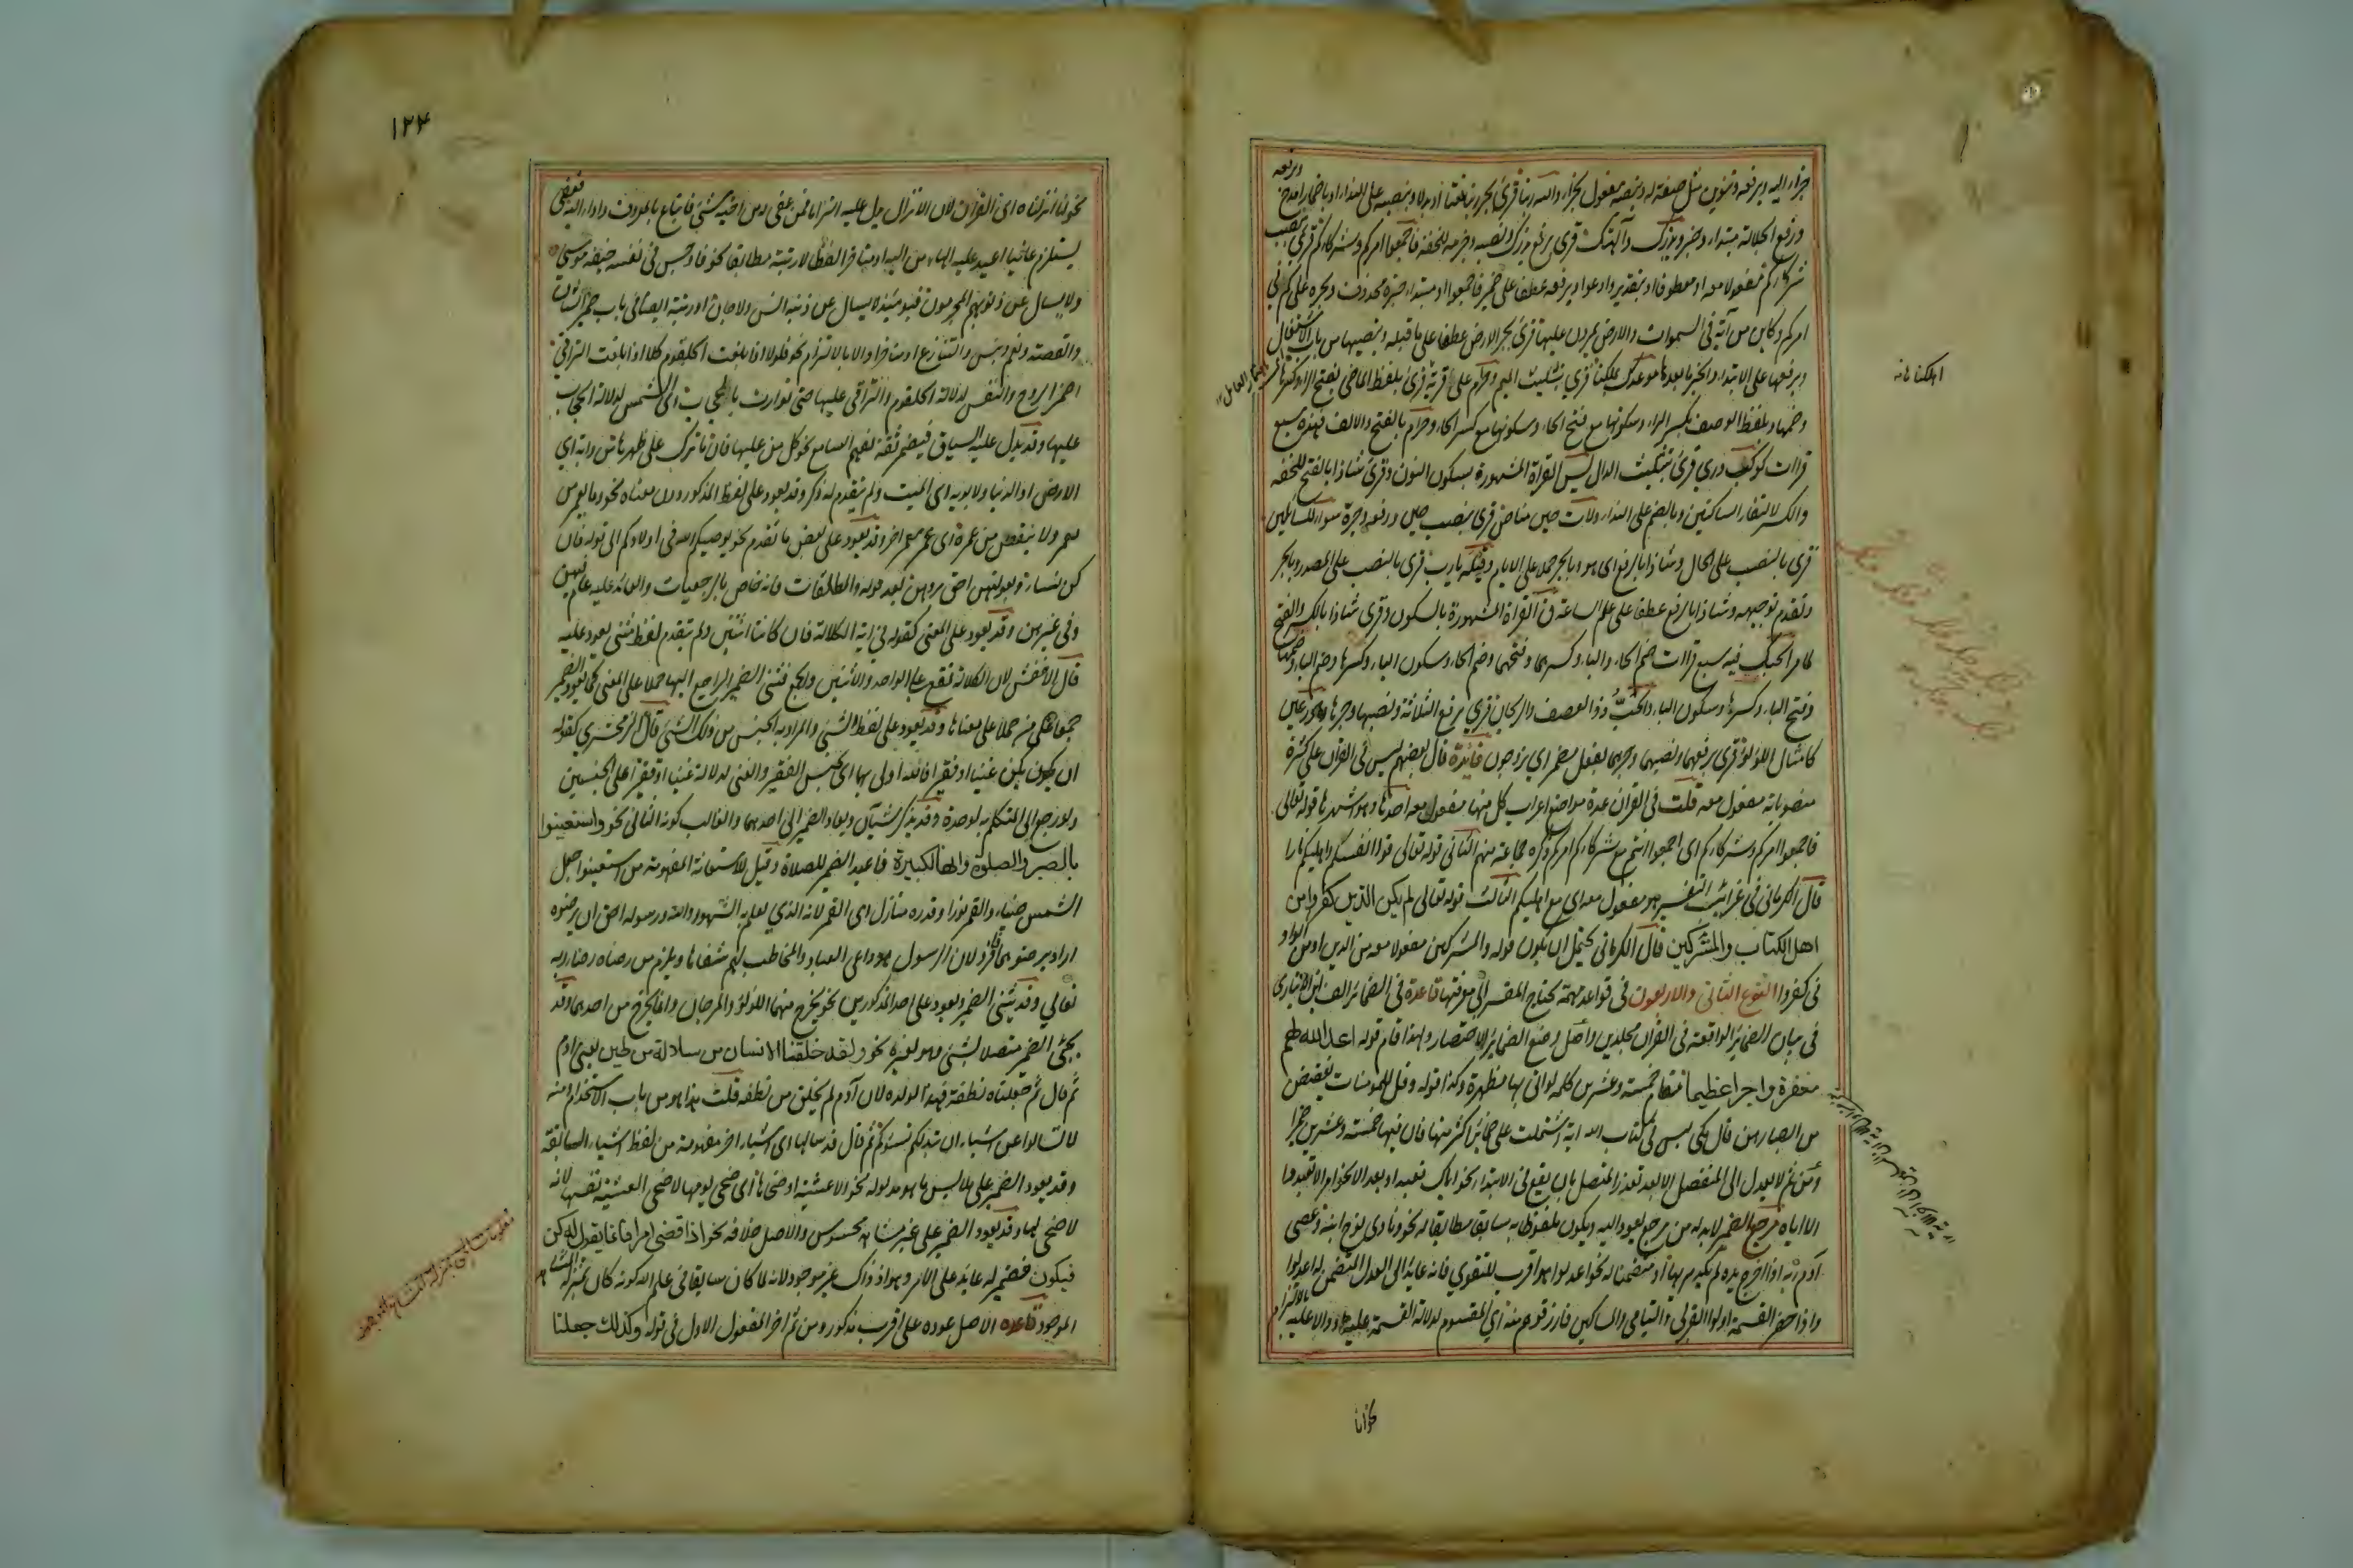 جزاء اليه وبرفعه وتنوين مثل صفة له وبنصبه مفعول بجزاء والله ربنا قرئ بجر ربنا نعتا او بدلا وبنصبه على النداء او باضمار امدح وبرفعه
ورفع الجلالة مبتداء وخبر ويذرك وآلهتك قرئ برفع يذرك ونصبه وجزمه للخفة فاجمعوا امركم وشركاءكم قرئ بنصب
شركاءكم مفعولا معه او معطوفا او بتقدير وادعوا وبرفعه عطفا على ضمير فاجمعوا او مبتداء خبره محذوف وبجره على كم في
امركم وكاين من آية في السموات والارض يمرون عليها قرئ بجر الارض عطفا على ما قبله وبنصبها من باب الاشتغال
وبرفعها على الابتداء والخبر ما بعدها موعدك بملكنا قرئ بتثليث الميم وحرام على قرية قرئ بلفظ الماضي بفتح الراء وكسرها
وضمها وبلفظ الوصف بكسر الراء وسكونها مع فتح الحاء وسكونها مع كسر الحاء وحرام بالفتح والالف فهذه سبع
قراات كوكب دري قرئ بتثليث الدال يس القراة المشهورة بسكون النون وقرئ شاذا بالفتح للخفة
والكسر لالتقاء الساكنين وبالضم على النداء ولات حين مناص قرئ بنصب حين ورفعه وجره سواء للسائلين
قرئ بالنصب على الحال وشاذا بالرفع اى هو وبالجر حملا على الايام وقيله يارب قرئ بالنصب على المصدر وبالجر
وتقدم توجيهه وشاذا بالرفع عطفا على علم الساعة ق القراة المشهورة بالسكون وقرئ شاذا بالكسر والفتح
لما مر الحبك فيه سبع قراات ضم الحاء والباء وكسرهما وفتحهما وضم الحاء وسكون الباء وكسرها وضم الباء وضمها
وفتح الباء وكسرها وسكون الباء والحب ذو العصف والريحان قرئ برفع الثلاثة ونصبها وجرها وحور عين
كامثال اللؤلؤ قرئ برفعهما ونصبهما وجرهما بفعل مضمر اى يزوجون فائدة قال بعضهم ليس في القران على كثرة
منصوباته مفعول معه قلت في القران عدة مواضع اعراب كل منها مفعول معه احدها وهو اشهرها قوله تعالى
فاجمعوا امركم وشركاءكم اى اجمعوا انتم مع شركاءكم امركم ذكره جماعة منهم الثاني قوله تعالى قوا انفسكم واهليكم نارا
قال الكرماني في غرائب التفسير هو مفعول معه اى مع اهليكم الثالث قوله تعالى لم يكن الذين كفروا من
اهل الكتاب والمشركين قال الكرماني يحتمل ان يكون قوله والمشركين مفعولا معه من الذين او من الواو
في كفروا النوع الثاني والاربعون في قواعد مهمة يحتاج المفسر الى معرفتها قاعدة في الضمائر الف ابن الانباري
في بيان الضمائر الواقعة في القران مجلدين واصل وضع الضمائر للاختصار ولهذا قام قوله اعد الله لهم
مغفرة واجرا عظيما مقام خمسة وعشرين كلمة لو اتى بها مظهرة وكذا قوله وقل للمومنات يغضضن
من ابصارهن قال مكي ليس في كتاب الله اية اشتملت على ضمائر اكثر منها فان فيها خمسة وعشرين ضميرا
ومن ثم لا يعدل الى المنفصل الا بعد تعذر المتصل بان يقع في الابتداء نحو اياك نعبد او بعد الا نحو امر الا تعبدوا
الا اياه مرجع الضمير لا بد له من مرجع يعود اليه ويكون ملفوظا به سابقا مطابقا له نحو ونادى نوح ابنه وعصى
آدم ربه اذا اخرج يده لم يكد يرىها او متضمنا له نحو اعدلوا هو اقرب للتقوى فانه عائد الى العدل المتضمن له اعدلوا
واذا حضر القسمة اولوا القربى واليتامى والمساكين فارزقوهم منه اي المقسوم لدلالة القسمة عليه او دالا عليه بالالتزام
اهلكناها
نحو انا
١٢٣
نحو انا انزلناه اى القران لان الانزال يدل عليه التزاما فمن عفي له من اخيه شئ فاتباع بالمعروف واداء اليه فعفي
يستلزم عافيا اعيد عليه الهاء من اليه او متاخرا لفظا لا رتبة مطابقا نحو فاوجس في نفسه خيفة موسى
ولا يسال عن ذنوبهم المجرمون فيومئذ لا يسال عن ذنبه انس ولا جان او رتبة ايضا في باب ضمير الشان
والقصة ونعم وبئس والتنازع او متاخرا دالا بالالتزام نحو فلولا اذا بلغت الحلقوم كلا اذا بلغت التراقي
اضمر الروح والنفس لدلالة الحلقوم والتراقي عليها حتى توارت بالحجاب اى الشمس لدلالة الحجاب
عليها وقد يدل عليه السياق فيضمر ثقة بفهم السامع نحو كل من عليها فان ما ترك على ظهرها من دابة اى
الارض او الدنيا ولابويه اى الميت ولم يتقدم له ذكر وقد يعود على لفظ المذكور دون معناه نحو وما يعمر من
معمر ولا ينقص من عمره اى عمر معمر اخر وقد يعود على بعض ما تقدم نحو يوصيكم الله في اولادكم الى قوله فان
كن نساء وبعولتهن احق بردهن بعد قوله والمطلقات فانه خاص بالرجعيات والعائد عليه عام فيهن
وفي غيرهن وقد يعود على المعنى كقوله في اية الكلالة فان كانتا اثنتين ولم يتقدم لفظ مثنى يعود عليه
قال الاخفش لان الكلالة تقع على الواحد والاثنين والجمع فثنى الضمير الراجع اليها حملا على المعنى كما يعود الضمير
جمعا على من حملا على معناها وقد يعود على لفظ الشئ والمراد به الجنس من ذلك الشئ قال الزمخشري كقوله
ان يكون يكن غنيا او فقيرا فالله اولى بهما اى بجنس الفقير والغنى لدلالة غنيا او فقيرا على الجنسين
ولو رجع الى المتكلم به لوحده وقد يذكر شيآن ويعاد الضمير الى احدهما والغالب كونه الثاني نحو واستعينوا
بالصبر والصلوة وانها لكبيرة فاعيد الضمير للصلاة وقيل للاستعانة المفهومة من استعينوا جعل
الشمس ضياء والقمر نورا وقدره منازل اى القمر لانه الذي يعلم به الشهور والله ورسوله احق ان يرضوه
اراد يرضوهما فافرد لان الرسول هو داعي العباد والمخاطب لهم شفاها ويلزم من رضاه رضا ربه
تعالي وقد يثنى الضمير ويعود على احد المذكورين نحو يخرج منهما اللؤلؤ والمرجان وانما يخرج من احدهما وقد
يجئ الضمير متصلا بشئ وهو لغيره نحو ولقد خلقنا الانسان من سلالة من طين يعنى ادم
ثم قال ثم جعلناه نطفة فهذه لولده لان آدم لم يخلق من نطفه قلت هذا هو من باب الاستخدام ومنه
لا تسالوا عن اشياء ان تبد لكم تسؤكم ثم قال قد سالها اى اشياء اخر مفهومة من لفظ اشياء السابقة
وقد يعود الضمير على ملابس ما هو مدلوله نحو الا عشية او ضحاها اى ضحى يومها لا ضحى العشية نفسها لانه
لا ضحى لها وقد يعود الضمير على غير مشاهد محسوس والاصل خلافه نحو اذا قضى امرا فانما يقول له كن
فيكون فضمير له عائد على الامر وهو اذ ذاك غير موجود لانه لما كان سابقا في علم الله كونه كان بمنزلة المشاهد
الموجود قاعدة الاصل عوده على اقرب مذكور ومن ثم اخر المفعول الاول في قوله وكذلك جعلنا